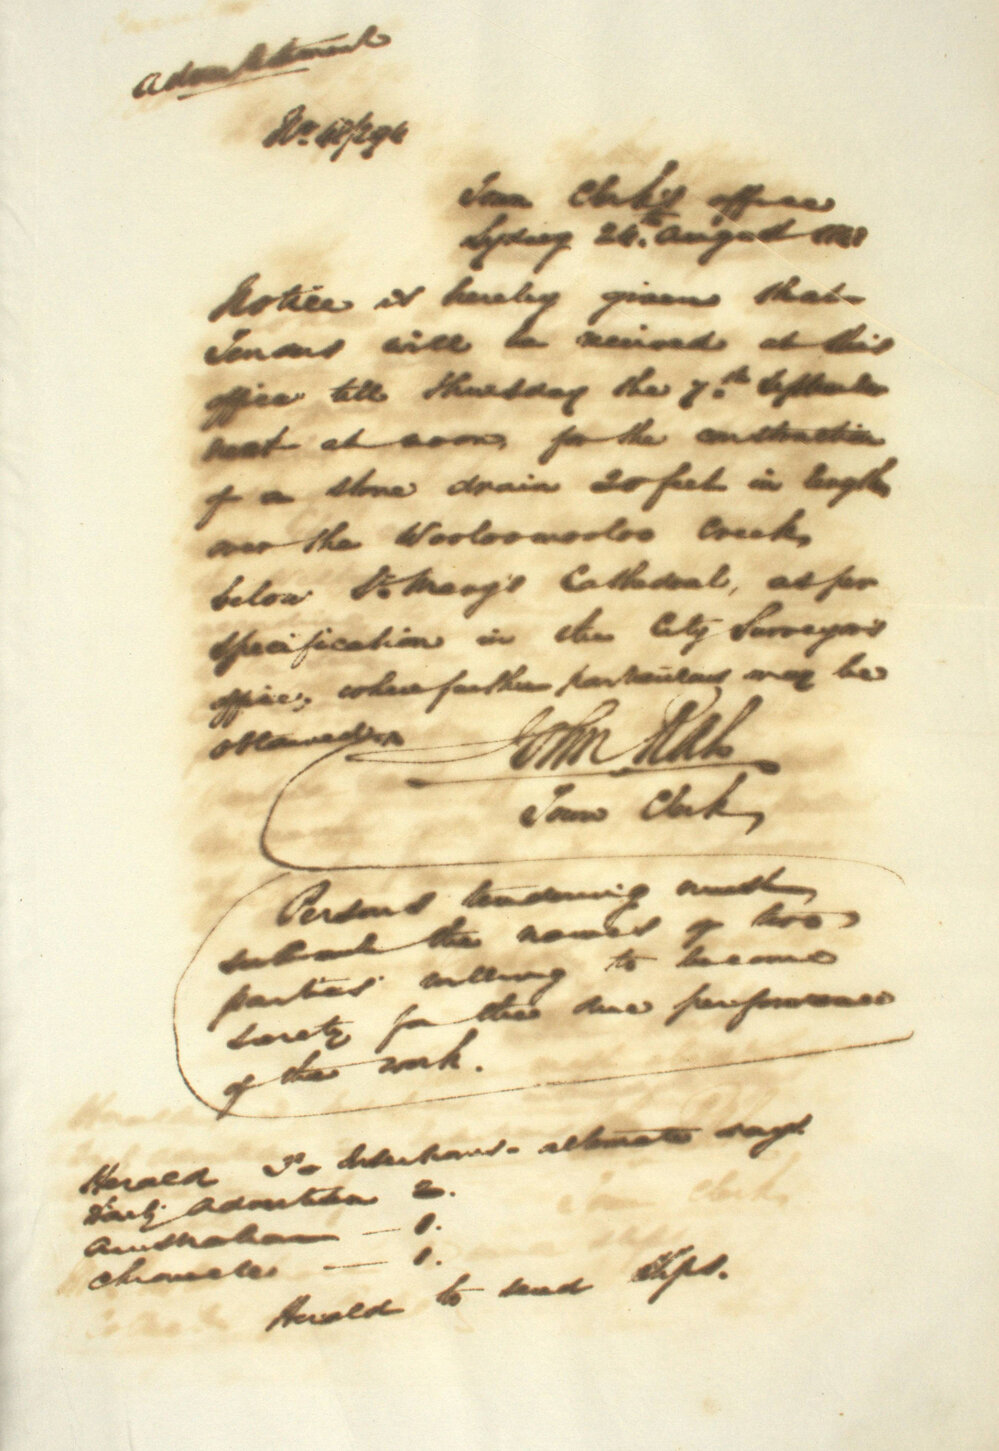 Advertisement
No. 48/294
Town Clerk's office
Sydney 24th August 1848
Notice is hereby given that
Tenders will be received at this
office till Thursday the 7th September
next at noon, for the construction
of a stone drain 20 feet in length
over the Woolloomooloo Creek,
below St. Mary's Cathedral, as per
specification in the City Surveyor's
office, where further particulars may be
obtained
John Rae
Town Clerk,
Persons tendering must
submit the names of two
parties willing to become
surety for the due performance
of the work.
Herald insertions - alternate days
Daily Advertiser 2.
Australian — 1.
Chronicle — 1.
Herald to send Slips.